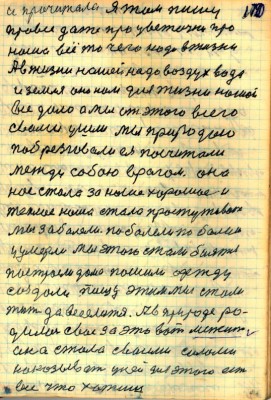 и прочитала Я там пишу
правда даже про цветочки про
наша всё то чего надо в жизни
А в жизни нашей надо воздух вода
и земля оно нам для жизни нашей
все дало а мы от этого всего
своим умом мы природою
побрезговали ея посчитали
между собою врагом она
нас стала за наше хорошее и
теплое наша стала простуживать
мы заболели поболели поболели
и умерли мы этого стали бояться
построили дом пошили одежду
создали пищу этим мы стали
жить да веселится. А в природе ро-
дили свое за это вот
она стала своими силами
наказывать у ней для этого есть
все что хотишь